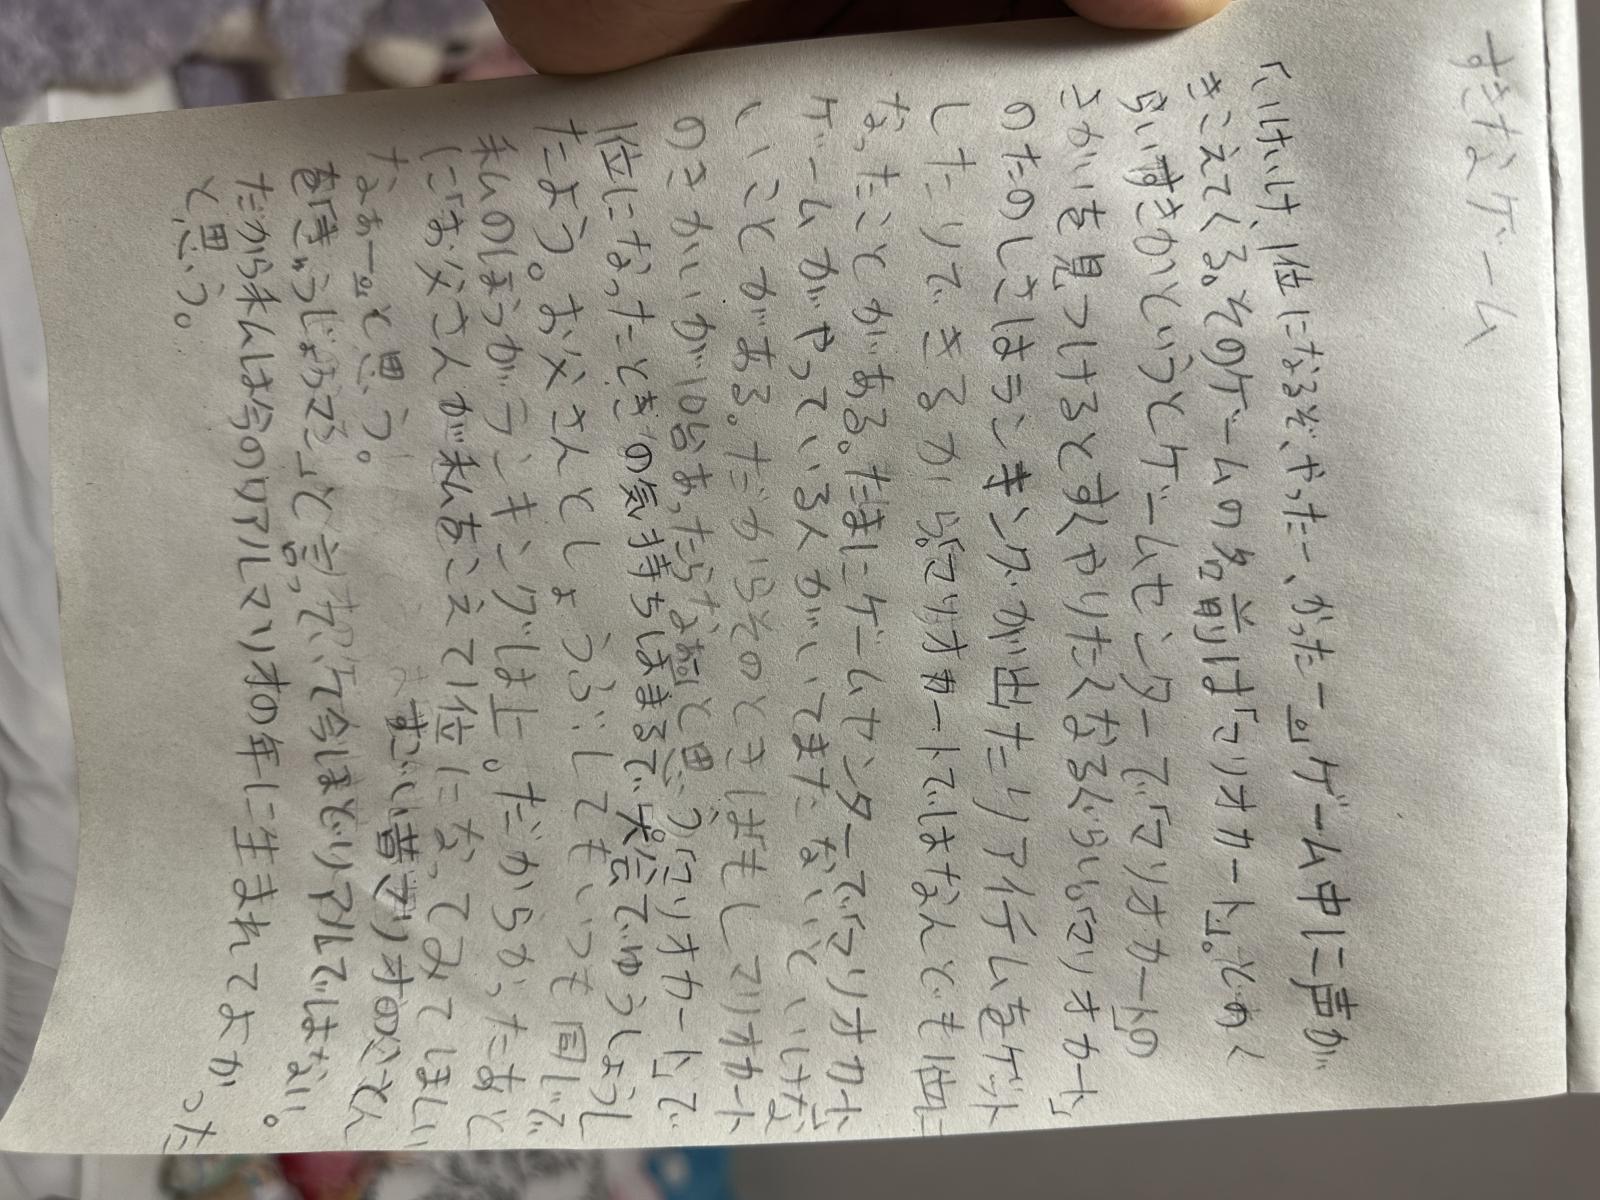 すきなゲーム
「いけいけ1位になるぞ、やったー、かったー。」ゲーム中に声が
きこえてくる。そのゲームの名前は「マリオカート」。どれく
らいすきかというとゲームセンターで「マリオカート」の
きかいを見つけるとすぐやりたくなるぐらい。「マリオカート」
のたのしさはランキングが出たりアイテムをゲット
したりできるから。「マリオカート」ではなんども1位に
なったことがある。たまにゲームセンターで「マリオカート」
ゲームがやっている人がいてまたないといけな
いことがある。だからそのときはもしマリオカート
のきかいが10台あったらなあと思う「マリオカート」で
1位になったときの気持ちはまるで大会でゆうしょうし
たよう。お父さんとしょうぶしてもいつも同じで
私のほうがランキングは上。だからかったあと
に「お父さんが私をこえて1位になってみてほしい
なぁー。」と思う。すごい昔マリオの
を「きゅうじょうで」と言って今ほどリアルではない。
だから私は今のリアルマリオの年に生まれてよかった
と思う。